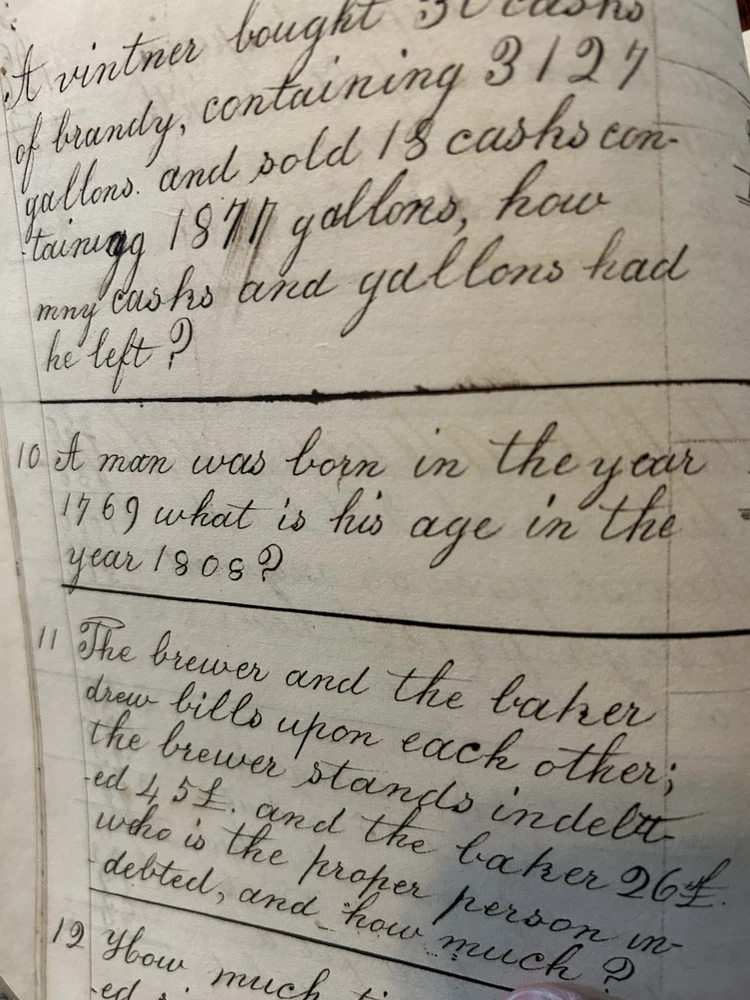 A vintner bought 30 casks
of brandy, containing 3127
gallons. and sold 18 casks con-
-taining 1877 gallons, how
mny casks and gallons had
he left?
10 A man was born in the year
1769 what is his age in the
year 1808?
11 The brewer and the baker
drew bills upon each other;
the brewer stands indebtt-
-ed 45£. and the baker 26£.
who is the proper person in-
-debted, and how much?
12 How much
-ed